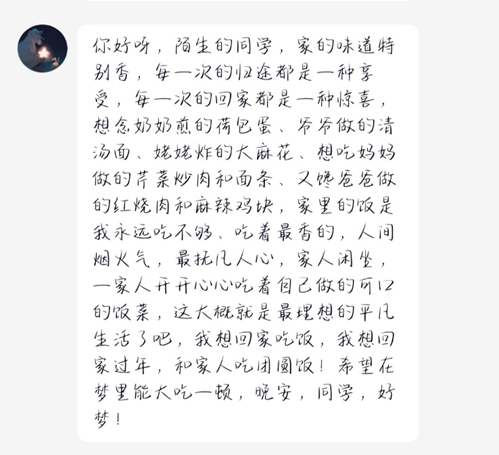 你好呀，陌生的同学，家的味道特
别香，每一次的归途都是一种享
受，每一次的回家都是一种惊喜，
想念奶奶煎的荷包蛋、爷爷做的清
汤面、姥姥炸的大麻花、想吃妈妈
做的芹菜炒肉和面条、又馋爸爸做
的红烧肉和麻辣鸡块，家里的饭是
我永远吃不够、吃着最香的，人间
烟火气，最抚凡人心，家人闲坐，
一家人开开心心吃着自己做的可口
的饭菜，这大概就是最理想的平凡
生活了吧，我想回家吃饭，我想回
家过年，和家人吃团圆饭！希望在
梦里能大吃一顿，晚安，同学，好
梦！